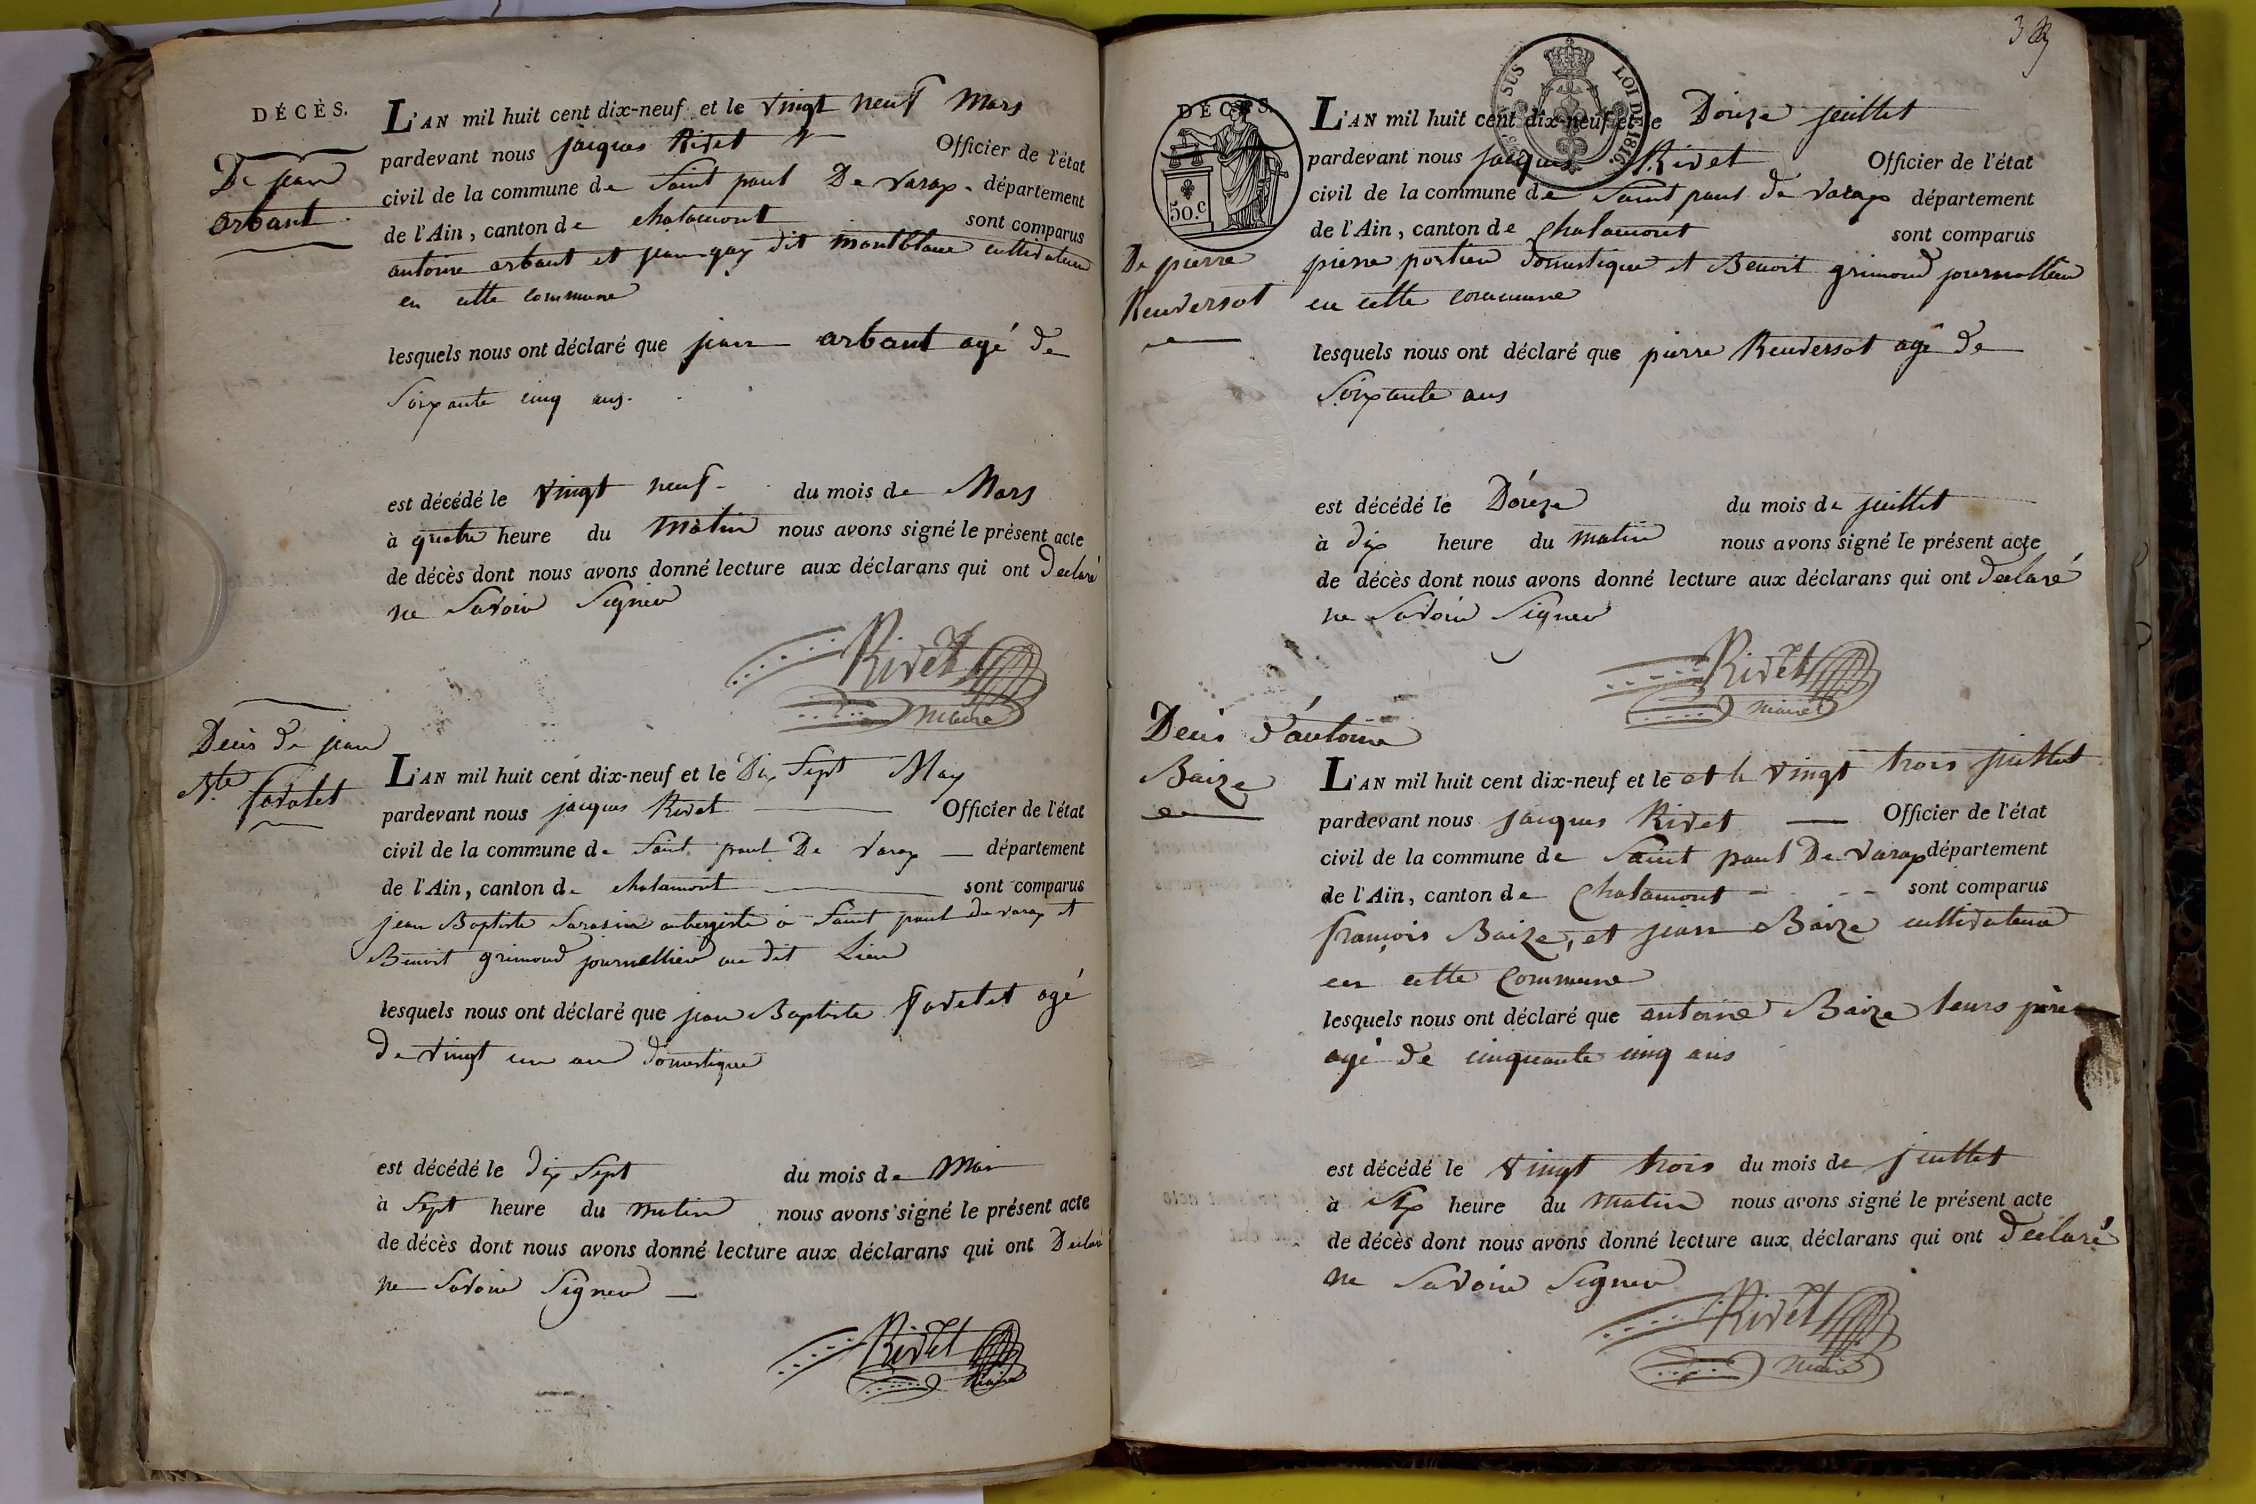 DÉCÈS.
De jean
arbant
L'AN mil huit cent dix-neuf et le vingt neuf Mars
pardevant nous jacques Rivet Officier de l'état
civil de la commune de Saint paul De varax département
de l'Ain, canton de chalamont sont comparus
antoine arbant et jean gay dit montblanc cultivateurs
en cette commune
lesquels nous ont déclaré que jean arbant agé de
Soixante cinq ans.
est décédé le vingt neuf du mois de Mars
à quatre heure du matin nous avons signé le présent acte
de décès dont nous avons donné lecture aux déclarans qui ont declaré
ne Savoir Signer
Rivet
maire
Deces de jean
Bte favolet
L'AN mil huit cent dix-neuf et le Dix Sept May
pardevant nous jacques Rivet Officier de l'état
civil de la commune de Saint paul De varax département
de l'Ain, canton de chalamont sont comparus
jean Baptiste Sarasin aubergiste a Saint paul de varax et
Benoit grimond journallier au dit Lieu
lesquels nous ont déclaré que jean Baptiste favelet agé
de vingt un an domestique
est décédé le dix Sept du mois de Mai
à Sept heure du matin nous avons signé le présent acte
de décès dont nous avons donné lecture aux déclarans qui ont Declaré
ne Savoir Signer
Rivet
maire
DÉCÈS.
50.c
SUS LOI DE 1816.
De pierre
Reudersot
L'AN mil huit cent dix-neuf et le Douze juillet
pardevant nous jacques Rivet Officier de l'état
civil de la commune de Saint paul de varax département
de l'Ain, canton de Chalamont sont comparus
pierre portier domestique et Benoit grimond journallier
en cette commune
lesquels nous ont déclaré que pierre Reudersot agé de
Soixante ans
est décédé le Douze du mois de juillet
à dix heure du matin nous avons signé le présent acte
de décès dont nous avons donné lecture aux déclarans qui ont declaré
ne Savoir Signer
Rivet
maire
Deces d'antoine
Baize
L'AN mil huit cent dix-neuf et le et le vingt trois juillet
pardevant nous jacques Rivet Officier de l'état
civil de la commune de Saint paul De varax département
de l'Ain, canton de Chalamont sont comparus
françois Baize, et jean Baize cultivateurs
en cette Commune
lesquels nous ont déclaré que antoine Baize leurs père
agé de cinquante cinq ans
est décédé le vingt trois du mois de juillet
à Six heure du matin nous avons signé le présent acte
de décès dont nous avons donné lecture aux déclarans qui ont declaré
ne Savoir Signer
Rivet
maire